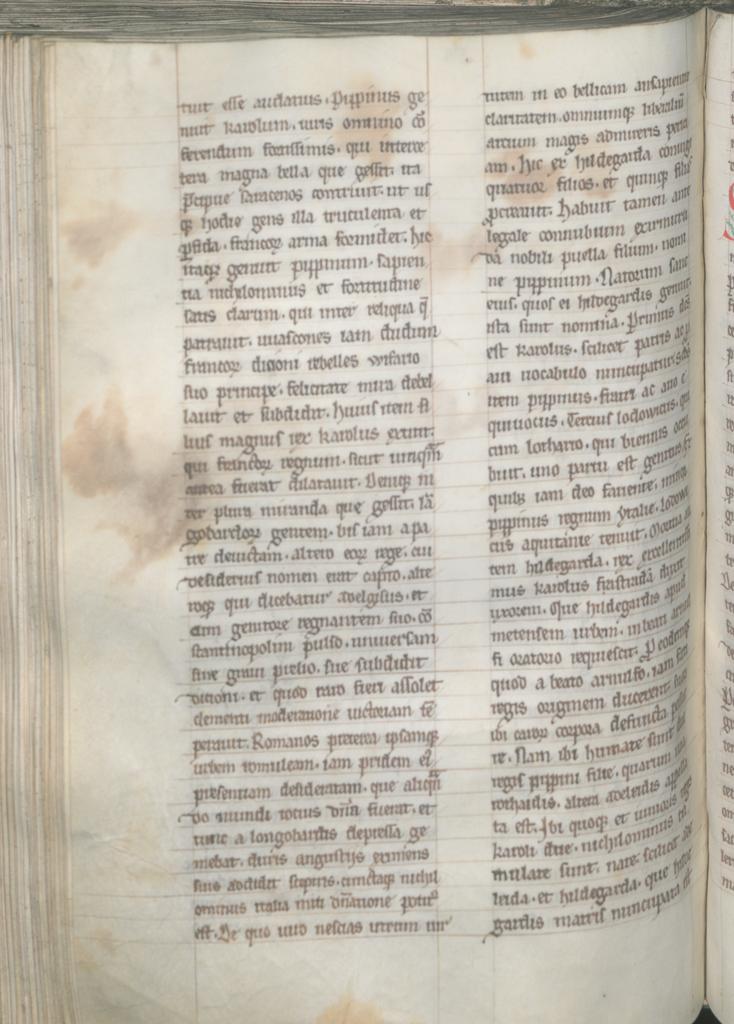 tuit esse audatius. Pippinus ge
nuit karolum. uiris omnino cō
ferendum fortissimis. qui inter ce
tera magna bella que gessit. ita
p̄cipue saracenos contriuit. ut us
qꝫ hodie gens illa truculenta et
ꝑfida. francoꝝ arma formidet. hic
itaqꝫ genuit pippinum. sapien
tia nichilominus et fortitudine
satis clarum. qui inter reliqua q̄
patrauit. uuascones iam dudum
francoꝝ dicioni rebelles
suo principe. felicitate mira debel
lauit et subdidit. huius item fi
lius magnus rex karolus extitit.
qui francoꝝ regnum. sicut unqꝫm̄
antea fuerat dilatauit. Deniqꝫ in
ter plura miranda que gessit. lā
gobardoꝝ gentem. bis iam a pa
tre deuictam. altero eoꝝ rege. cui
desiderius nomen erat capto. alte
roqꝫ qui dicebatur adelgisus. et
cum genitore regnantem suo. cō
stantinopolim pulso. uniuersam
sine graui prelio. sue subdidit
dicioni. et quod raro fieri assolet
clementi moderatione uictoriam tē
perauit. Romanos preterea ipsamqꝫ
urbem romuleam. iam pridem ei᷒
presentiam desideratam. que aliqn̄
do mundi totius dn̄a fuerat. et
tunc a longobardis depressa ge
mebat. duris angustijs eximens
suis addidit sceptris. cunctaqꝫ nichil
ominus italia miti dn̄atione potit᷒
est. De quo uiro nescias utrum uir
tutem in eo bellicam an sapientie
claritatem. omniumqꝫ liberaliū
artium magis admireris periti
am. hic ex hildegarda coniuge
quatuor filios. et quinqꝫ filias
ꝓcreauit. habuit tamen ante
legale connubium ex himiltru
da nobili puella filium. nomi
ne pippinum. Natorum sane
eius. quos ei hildegardis genuit.
ista sunt nomina. Primus dc̄s
est karolus. scilicet patris ac p
aui uocabulo nuncupatus. sc̄ds
item pippinus. fratri ac auo e
quiuocus. Tercius lodowicus. qui
cum lothario. qui biennis occu
buit. uno partu est genitus. Ex
quibꝫ iam deo fauente. minor
pippinus regnum ytalie. lodowi
cus aquitanie tenuit. Mortua au
tem hildegarda. rex excellentissi
mus karolus fastradā duxit
uxorem. Que hildegardis apud
metensem urbem. in beati arnul
fi oratorio requiescit. Et eodemqꝫ
quod a beato arnulfo. iam facti
regis originem ducerent. sua
ibi caroꝝ corpora defuncta posue
re. Nam ibi humate sunt due
regis pippini filie. quarum una
rothaidis. altera adeleidis appella
ta est. Ibi quoqꝫ et uniuis regis
karoli due. nichilominus tu
mulate sunt. nate. scilicet ade
leida. et hildegarda. que hilde
gardis matris nuncupata est